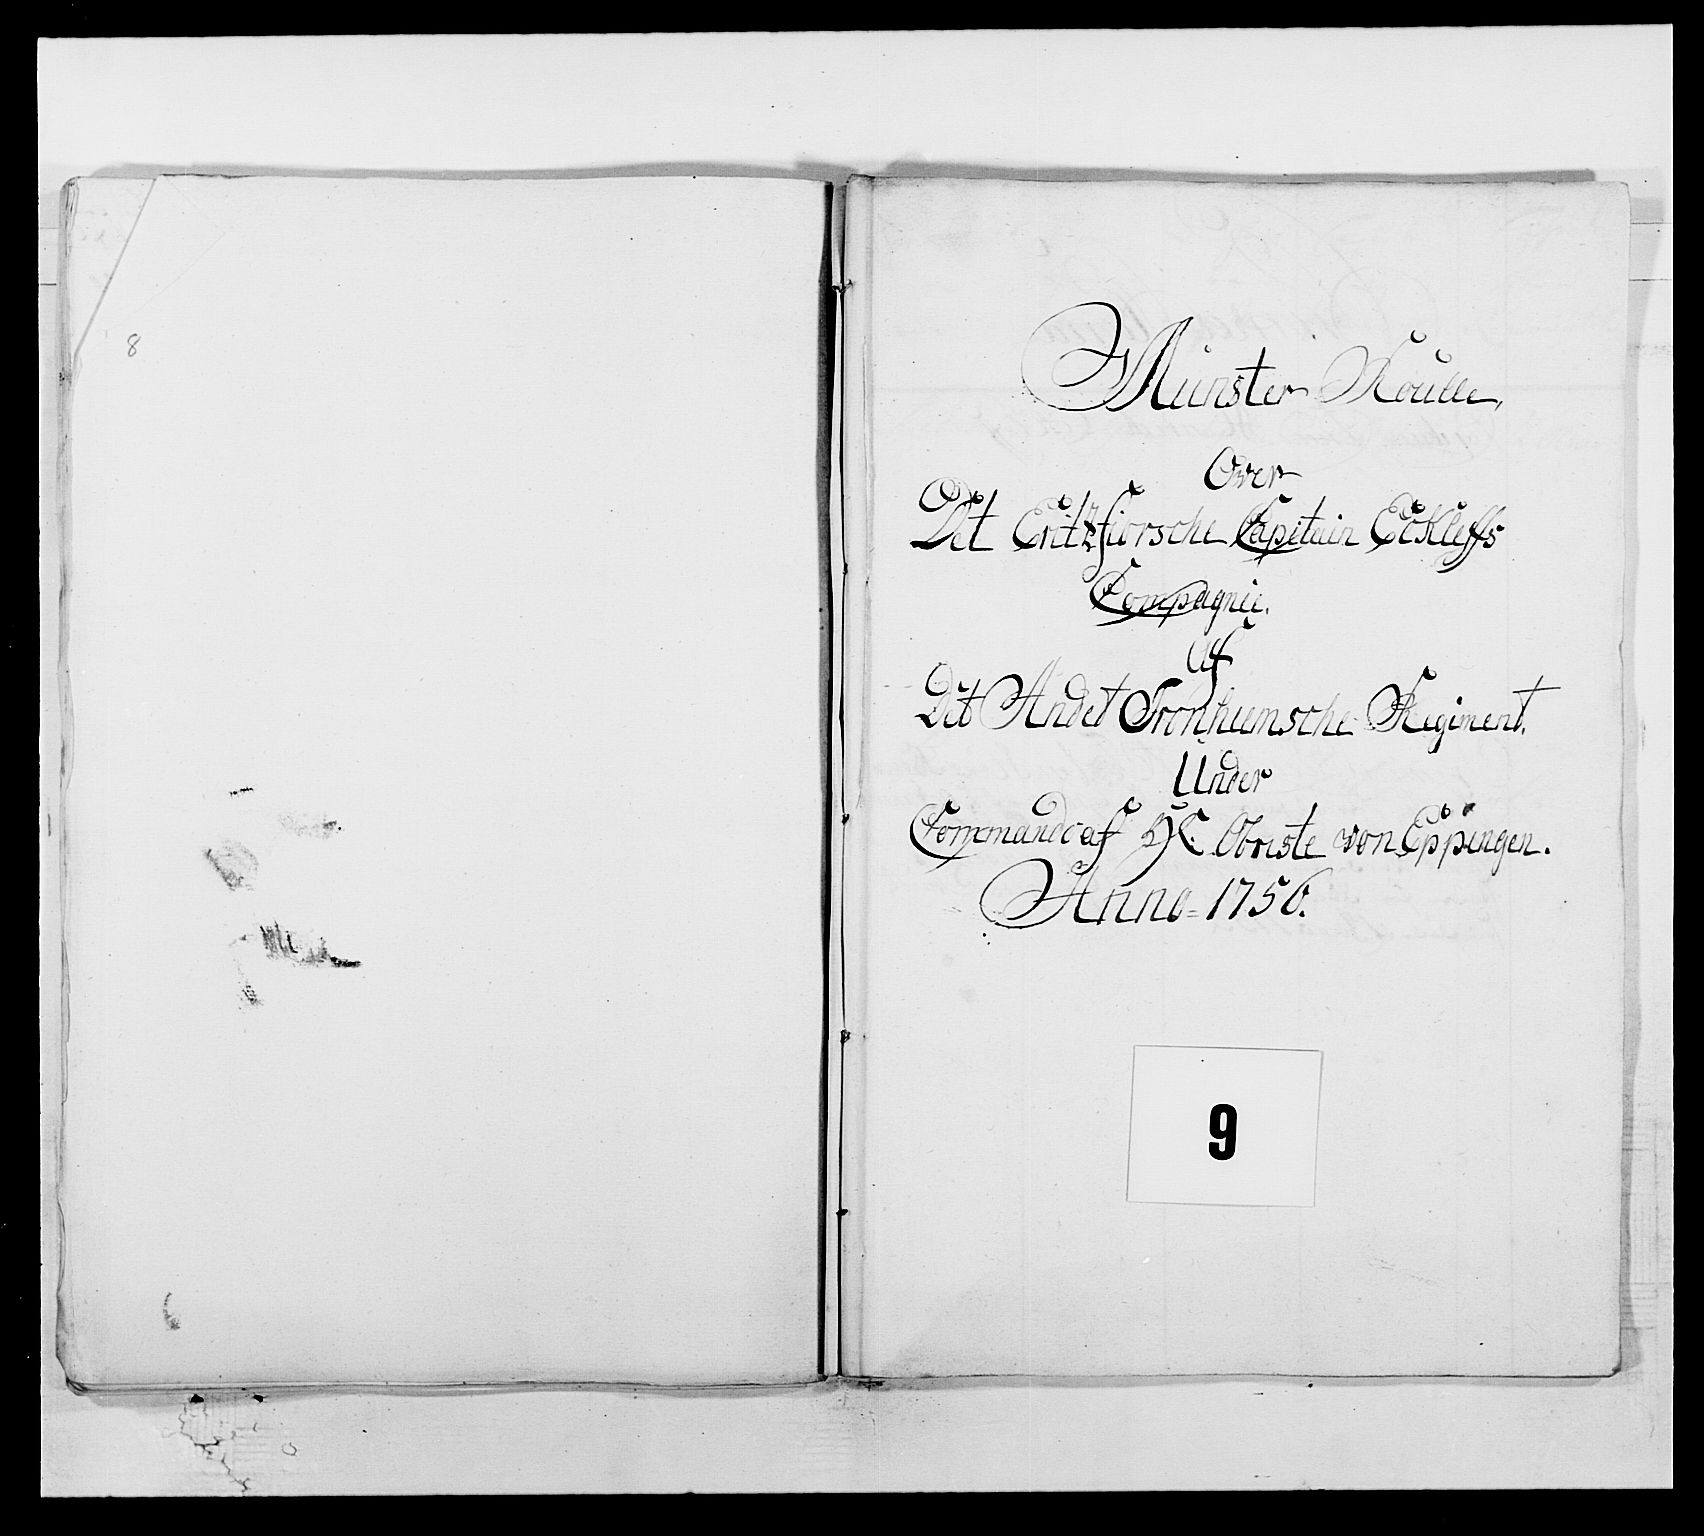 8
Münster Roulle,
Over
Det Eritzfiorsche Capitain Eckleffs
Compagnie.
af
Det Andet Tronhiemsche Regiment.
Under
Commando af H: Obriste von Eppingen.
Anno = 1756.
9